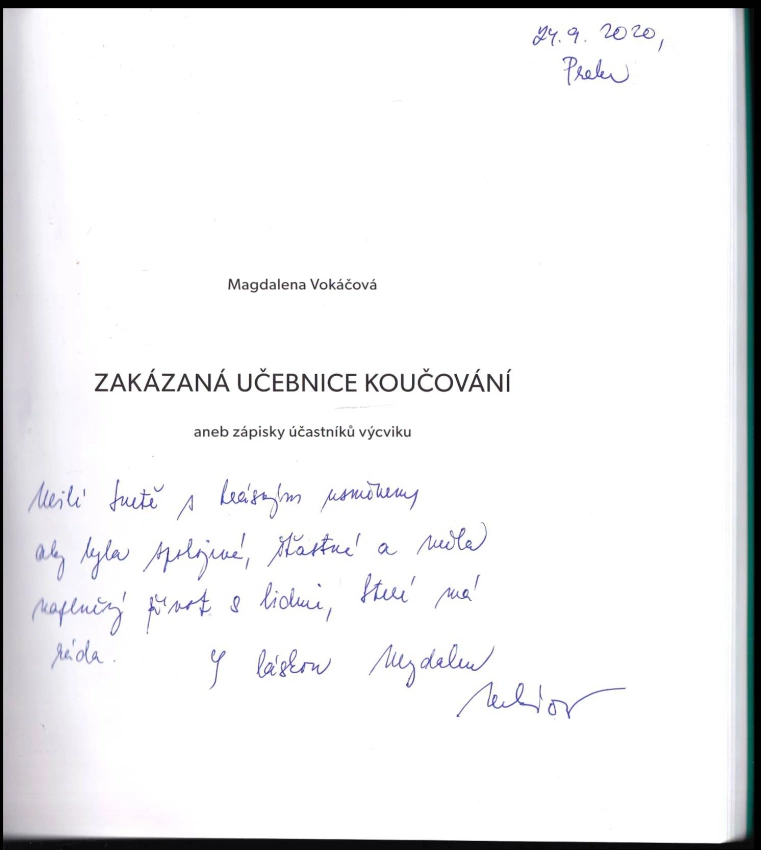 24. 9. 2020,
Praha
Magdalena Vokáčová
ZAKÁZANÁ UČEBNICE KOUČOVÁNÍ
aneb zápisky účastníků výcviku
Milé s krásným
aby byla spokojená, šťastná a měla
naplněný život s lidmi, které má
ráda. S láskou Magdalena